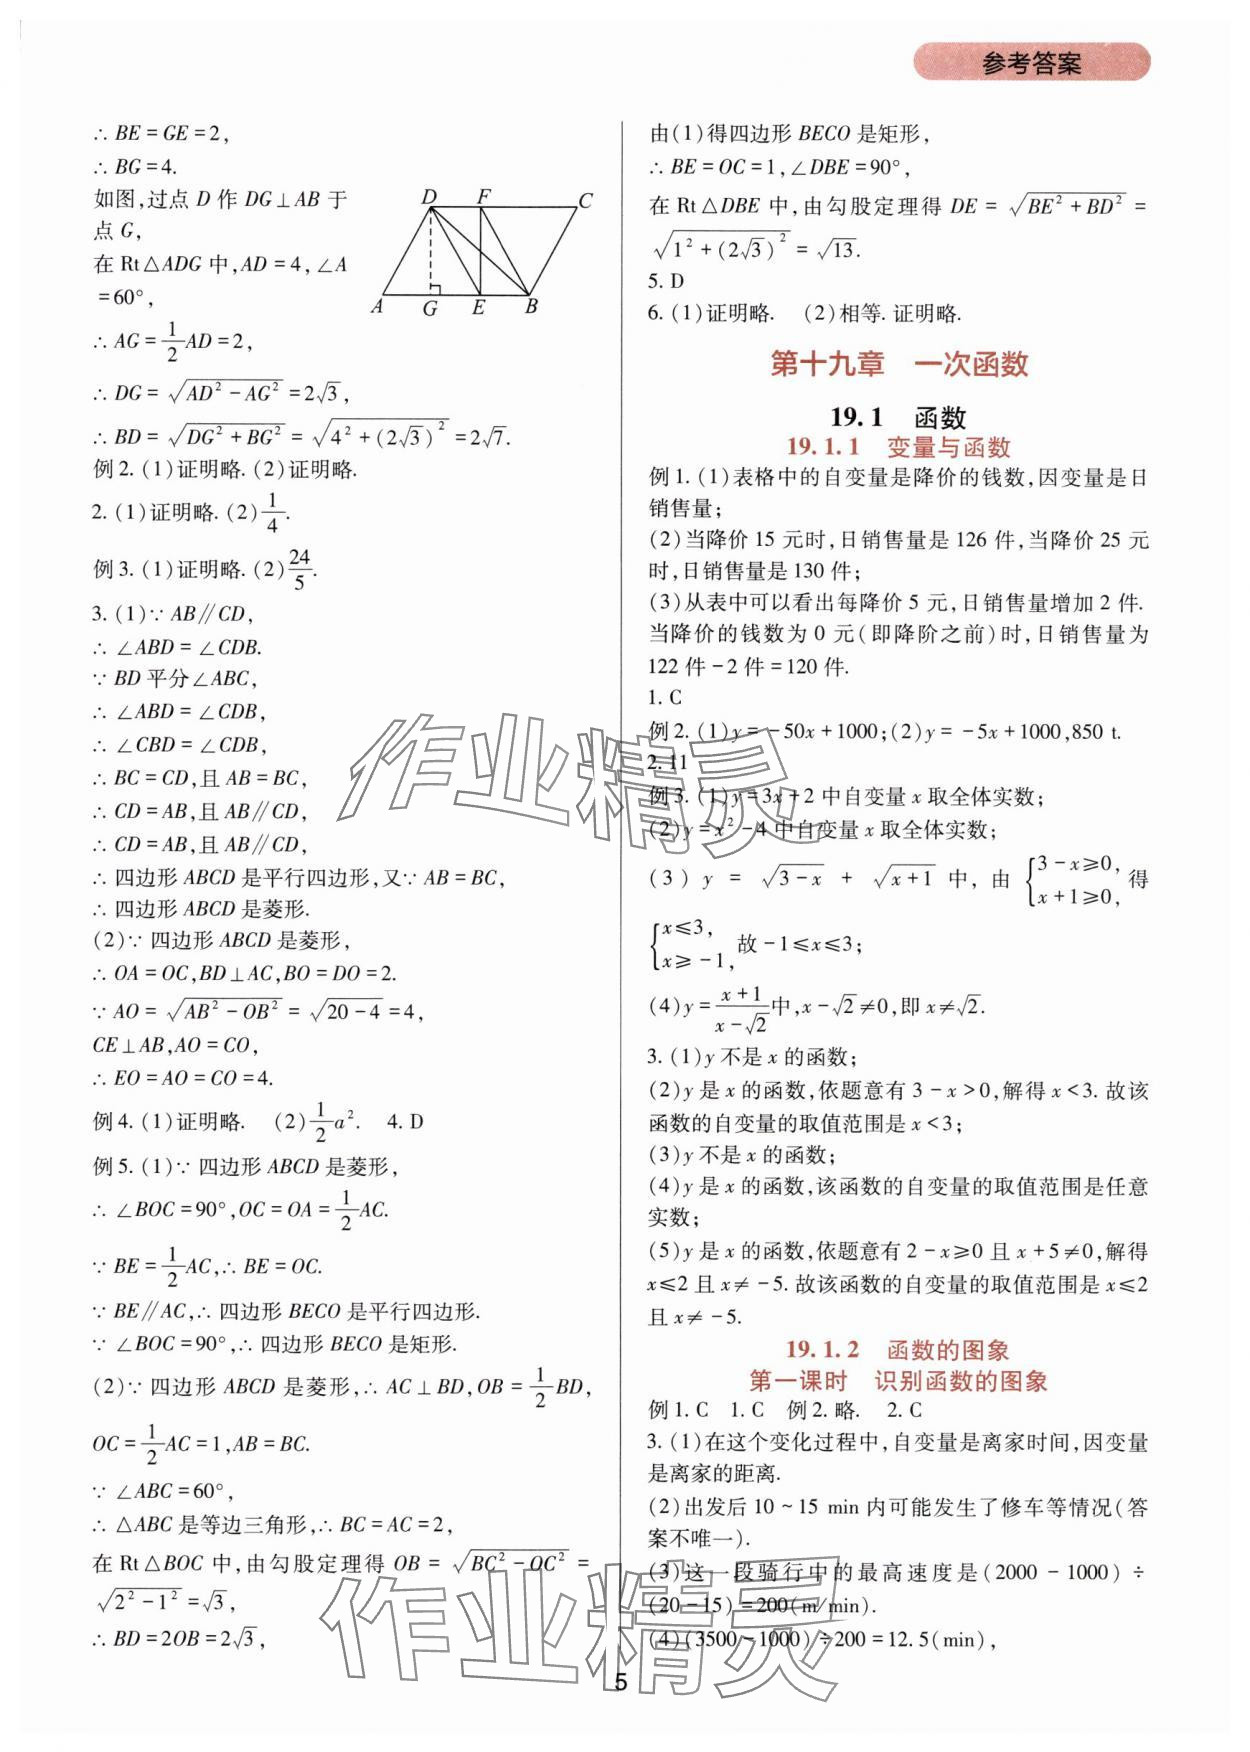 参考答案
∴ BE = GE = 2,
∴ BG = 4.
如图,过点 D 作 DG⊥AB 于
点 G,
在 Rt△ADG 中,AD = 4,∠A
= 60°,
∴ AG = \frac{1}{2}AD = 2,
∴ DG = \sqrt{AD² - AG²} = 2√3,
∴ BD = \sqrt{DG² + BG²} = \sqrt{4² + (2√3)²} = 2√7.
D F C
A G E B
例 2. (1)证明略. (2)证明略.
2. (1)证明略. (2)\frac{1}{4}.
例 3. (1)证明略. (2)\frac{24}{5}.
3. (1)∵ AB∥CD,
∴ ∠ABD = ∠CDB.
∵ BD 平分∠ABC,
∴ ∠ABD = ∠CDB,
∴ ∠CBD = ∠CDB,
∴ BC = CD,且 AB = BC,
∴ CD = AB,且 AB∥CD,
∴ CD = AB,且 AB∥CD,
∴ 四边形 ABCD 是平行四边形,又∵ AB = BC,
∴ 四边形 ABCD 是菱形.
(2)∵ 四边形 ABCD 是菱形,
∴ OA = OC,BD⊥AC,BO = DO = 2.
∵ AO = \sqrt{AB² - OB²} = \sqrt{20 - 4} = 4,
CE⊥AB,AO = CO,
∴ EO = AO = CO = 4.
例 4. (1)证明略. (2)\frac{1}{2}a². 4. D
例 5. (1)∵ 四边形 ABCD 是菱形,
∴ ∠BOC = 90°,OC = OA = \frac{1}{2}AC.
∵ BE = \frac{1}{2}AC,∴ BE = OC.
∵ BE∥AC,∴ 四边形 BECO 是平行四边形.
∵ ∠BOC = 90°,∴ 四边形 BECO 是矩形.
(2)∵ 四边形 ABCD 是菱形,∴ AC⊥BD,OB = \frac{1}{2}BD,
OC = \frac{1}{2}AC = 1,AB = BC.
∵ ∠ABC = 60°,
∴ △ABC 是等边三角形,∴ BC = AC = 2,
在 Rt△BOC 中,由勾股定理得 OB = \sqrt{BC² - OC²} =
\sqrt{2² - 1²} = √3,
∴ BD = 2OB = 2√3,
由(1)得四边形 BECO 是矩形,
∴ BE = OC = 1,∠DBE = 90°,
在 Rt△DBE 中,由勾股定理得 DE = \sqrt{BE² + BD²} =
\sqrt{1² + (2√3)²} = √13.
5. D
6. (1)证明略. (2)相等. 证明略.
第十九章 一次函数
19.1 函数
19.1.1 变量与函数
例 1. (1)表格中的自变量是降价的钱数,因变量是日
销售量;
(2)当降价 15 元时,日销售量是 126 件,当降价 25 元
时,日销售量是 130 件;
(3)从表中可以看出每降价 5 元,日销售量增加 2 件.
当降价的钱数为 0 元(即降阶之前)时,日销售量为
122 件 - 2 件 = 120 件.
1. C
例 2. (1)y = -50x + 1000;(2)y = -5x + 1000,850 t.
2. 11
例 3. (1)y = 3x + 2 中自变量 x 取全体实数;
(2)y = x² - 4 中自变量 x 取全体实数;
(3) y = \sqrt{3 - x} + \sqrt{x + 1} 中, 由 {3 - x ≥ 0, x + 1 ≥ 0, 得
{x ≤ 3, x ≥ -1, 故 -1 ≤ x ≤ 3;
(4)y = \frac{x + 1}{x - √2}中,x - √2 ≠ 0,即 x ≠ √2.
3. (1)y 不是 x 的函数;
(2)y 是 x 的函数,依题意有 3 - x > 0,解得 x < 3. 故该
函数的自变量的取值范围是 x < 3;
(3)y 不是 x 的函数;
(4)y 是 x 的函数,该函数的自变量的取值范围是任意
实数;
(5)y 是 x 的函数,依题意有 2 - x ≥ 0 且 x + 5 ≠ 0,解得
x ≤ 2 且 x ≠ -5. 故该函数的自变量的取值范围是 x ≤ 2
且 x ≠ -5.
19.1.2 函数的图象
第一课时 识别函数的图象
例 1. C 1. C 例 2. 略. 2. C
3. (1)在这个变化过程中,自变量是离家时间,因变量
是离家的距离.
(2)出发后 10 ~ 15 min 内可能发生了修车等情况(答
案不唯一).
(3)这一段骑行中的最高速度是(2000 - 1000) ÷
(20 - 15) = 200(m/min).
(4)(3500 - 1000) ÷ 200 = 12.5(min),
作业精灵
作业精灵
5